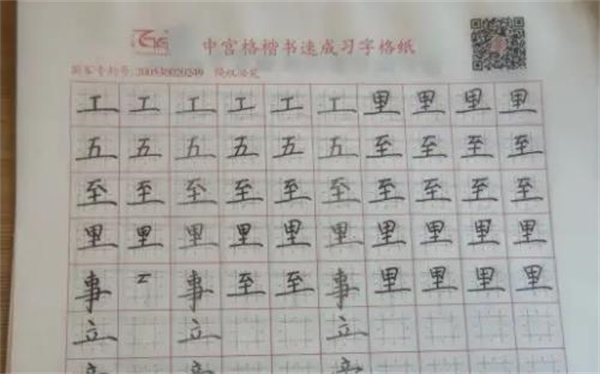 中宫格楷书速成习字格纸
国家专利号:200530020249 侵权必究
工工工工工工里里里里
五五五五五五至至至至
至至至至至至至至至至
里里里里里里里里里里
事二事至至事里里里里
立立立